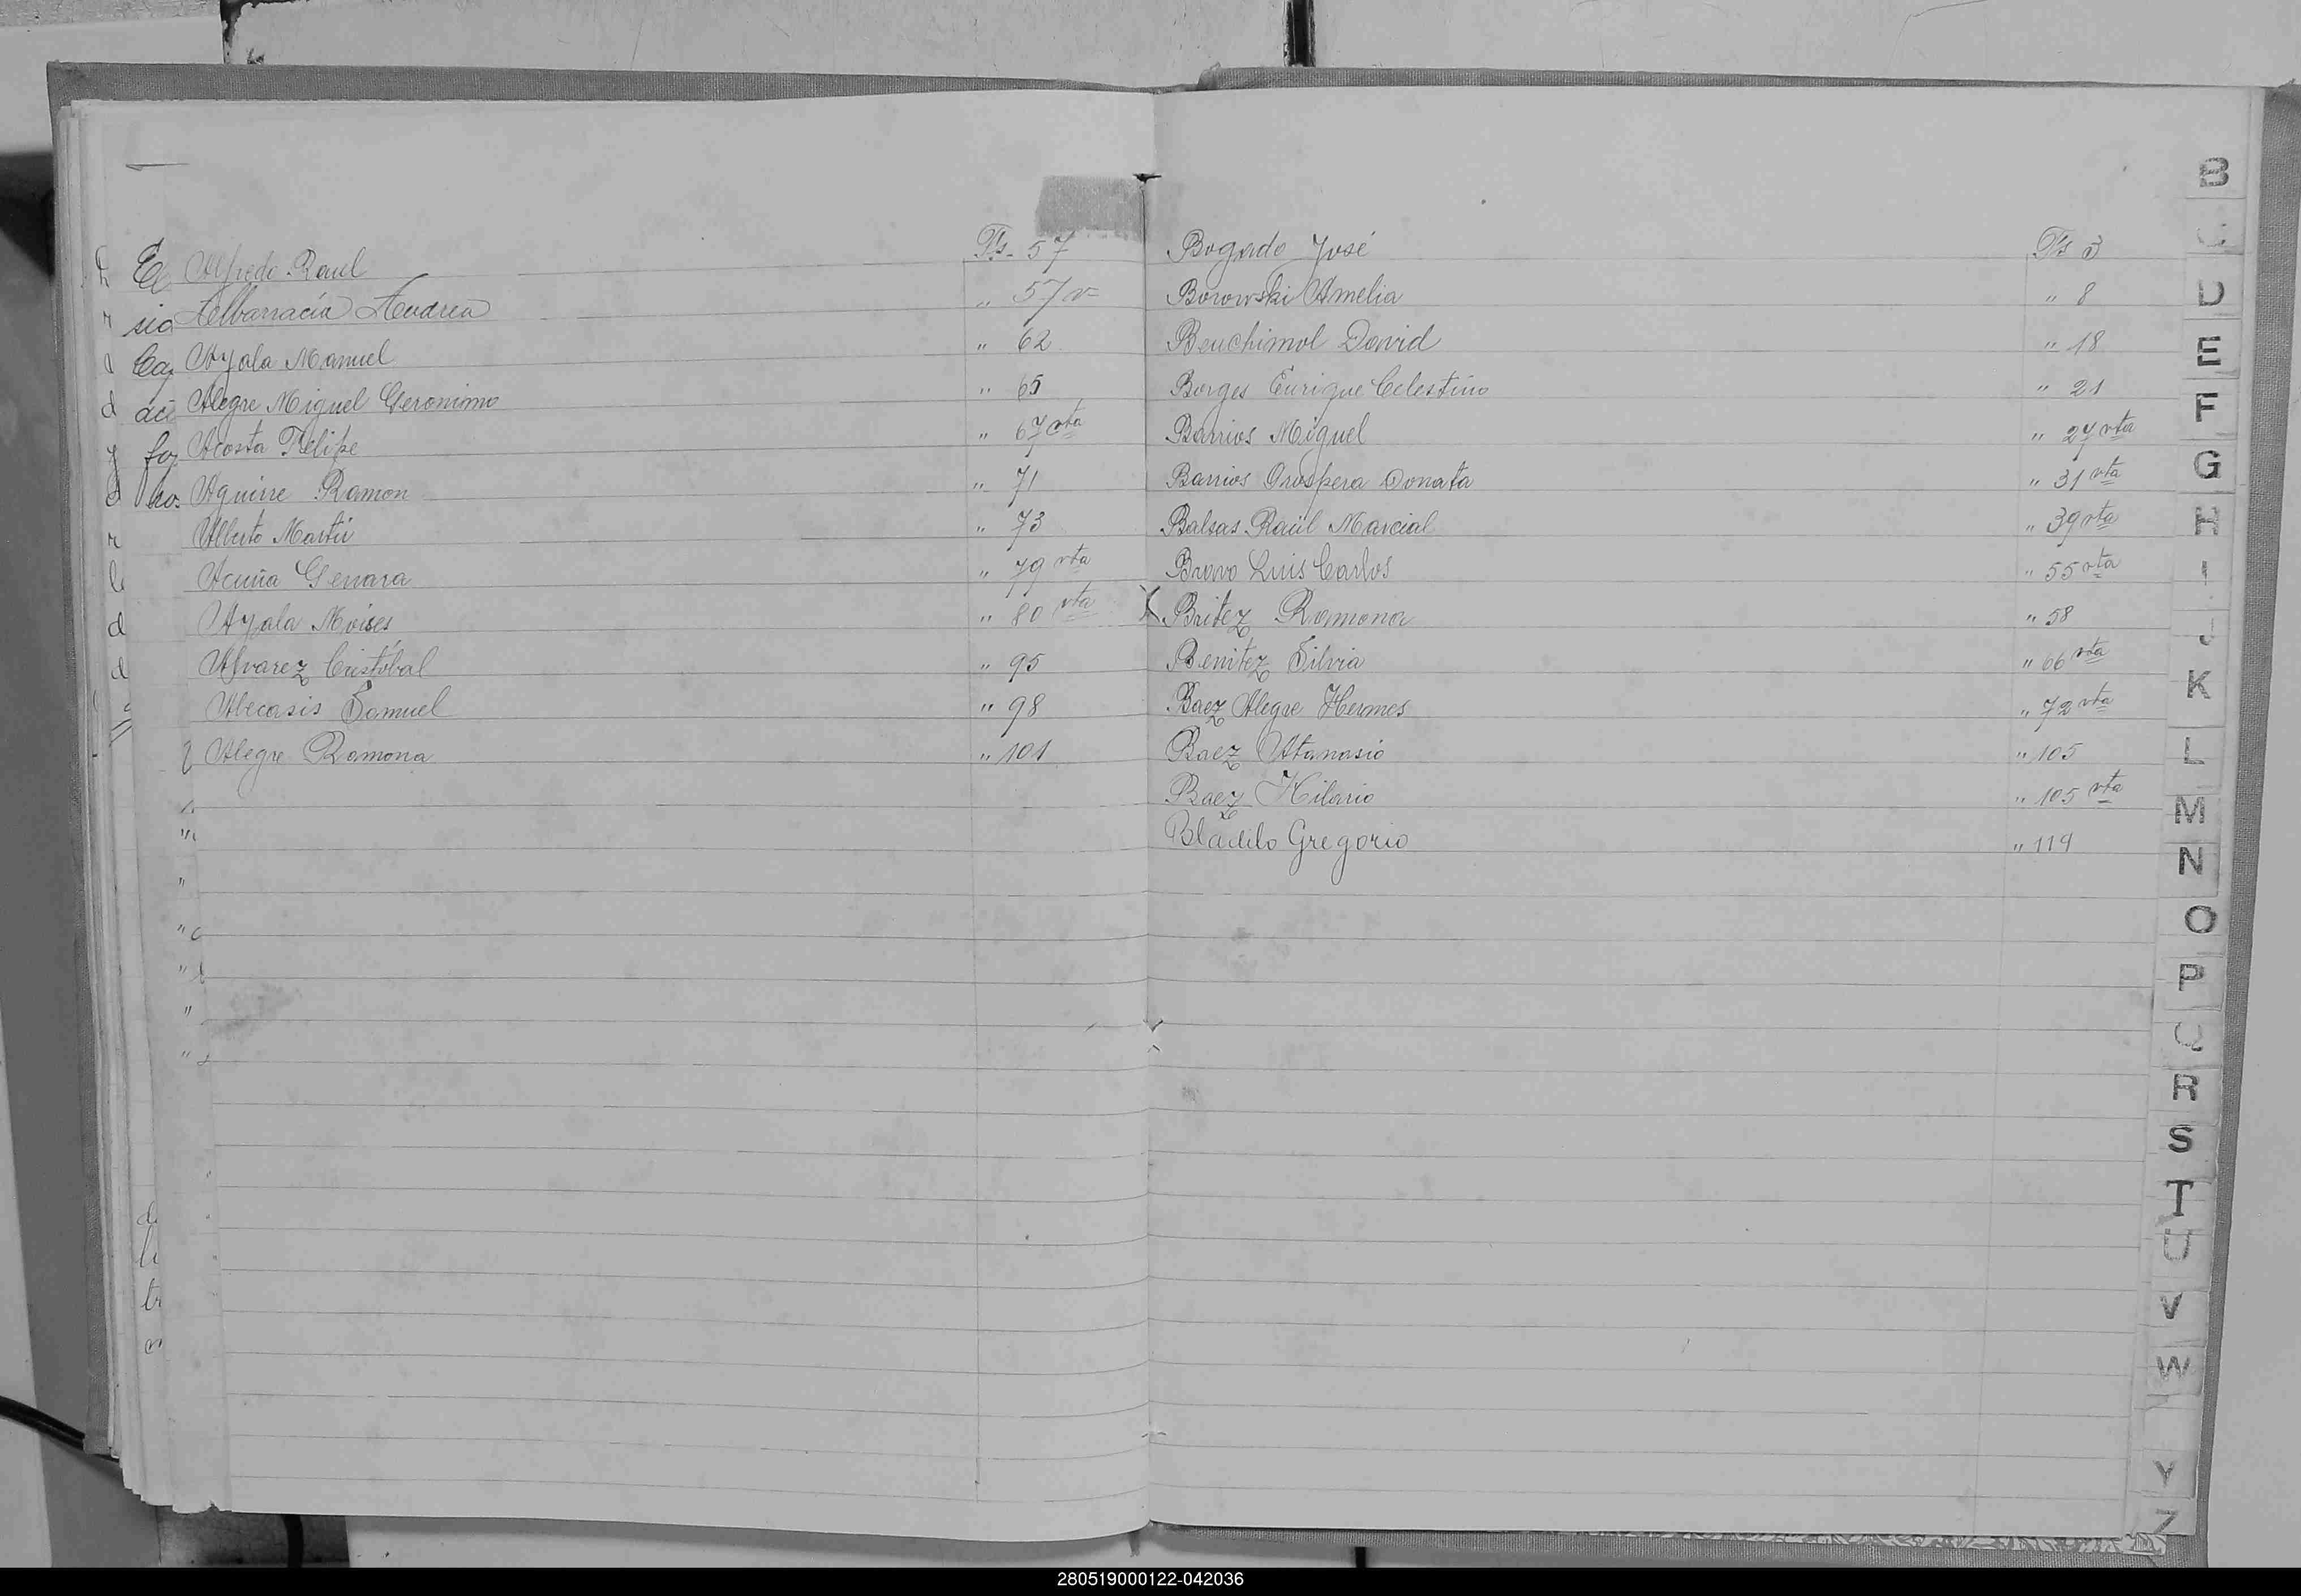 Alfredo Raul Fs. 57
Albarracín Andrea " 57 v
Ayala Manuel " 62
Alegre Miguel Geronimo " 65
Acosta Felipe " 67 vta
Aguirre Ramon " 71
Alberto Martín " 73
Acuña Genara " 79 vta
Ayala Moisés " 80 vta
Alvarez Cristóbal " 95
Abecasis Samuel " 98
Alegre Ramona " 101
Bogado José Fs 3
Borowski Amelia " 8
Benchimol David " 18
Borges Enrique Celestino " 21
Barrios Miguel " 27 vta
Barrios Prospera Donata " 31 vta
Balsas Raúl Marcial " 39 vta
Bravo Luis Carlos " 55 vta
X Britez Ramona " 58
Benitez Silvia " 66 vta
Baez Alegre Hermes " 72 vta
Baez Atanasio " 105
Baez Hilario " 105 vta
Bladilo Gregorio " 119
B
C
D
E
F
G
H
I
J
K
L
M
N
O
P
Q
R
S
T
U
V
W
Y
Z
280519000122-042036